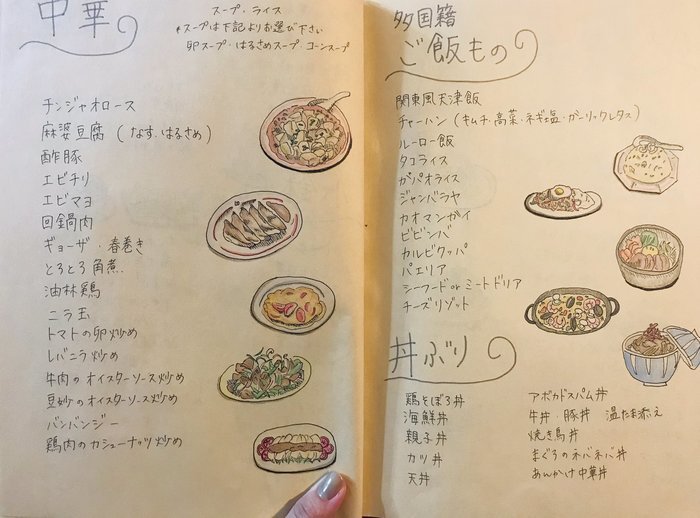 中華
スープ・ライス
*スープは下記よりお選び下さい
卵スープ・はるさめスープ・コーンスープ
チンジャオロース
麻婆豆腐(なす・はるさめ)
酢豚
エビチリ
エビマヨ
回鍋肉
ギョーザ・春巻き
とろとろ角煮
油林鶏
ニラ玉
トマトの卵炒め
レバニラ炒め
牛肉のオイスターソース炒め
豆炒のオイスターソース炒め
バンバンジー
鶏肉のカシューナッツ炒め
多国籍
ご飯もの
関東風天津飯
チャーハン(キムチ・高菜・ネギ塩・ガーリックレタス)
ルーロー飯
タコライス
ガパオライス
ジャンバラヤ
カオマンガイ
ビビンバ
カルビクッパ
パエリア
シーフードorミートドリア
チーズリゾット
丼ぶり
鶏そぼろ丼
海鮮丼
親子丼
カツ丼
天丼
アボカドスパム丼
牛丼・豚丼 温たま添え
焼き鳥丼
まぐろのネバネバ丼
あんかけ中華丼